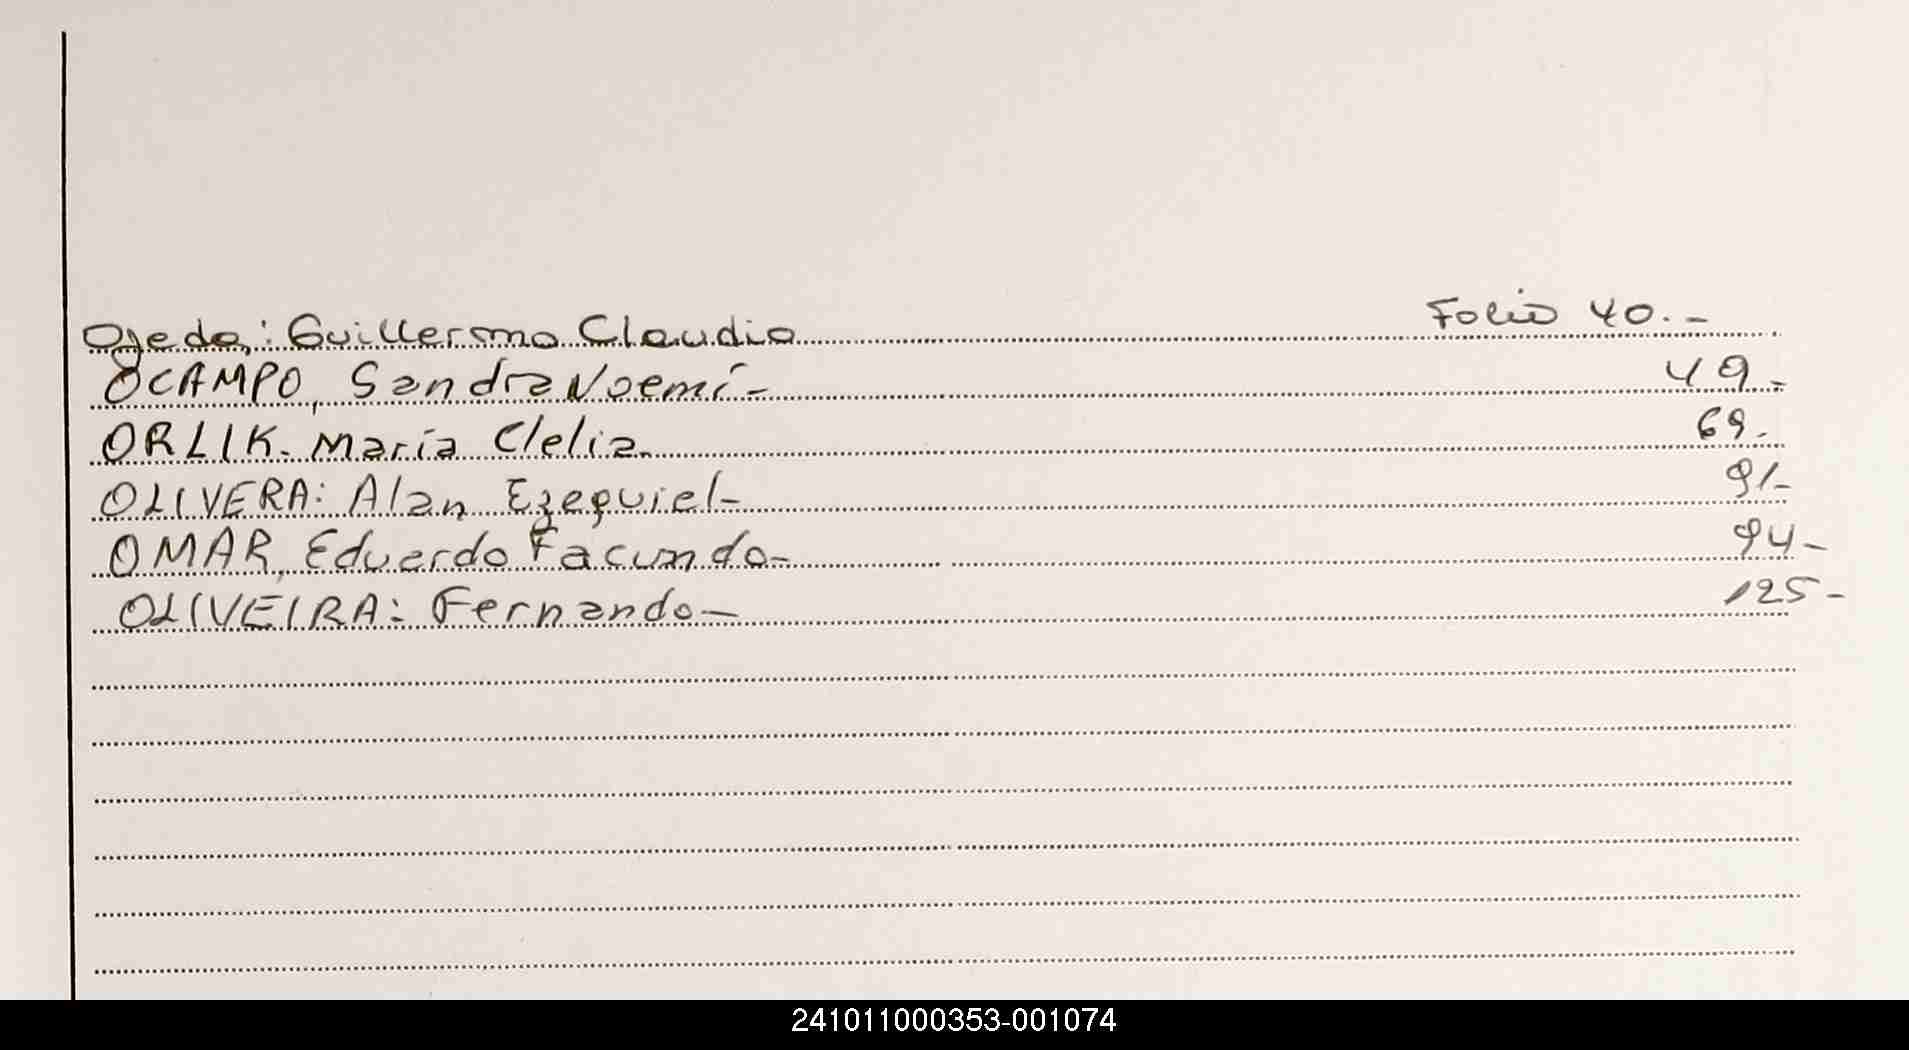 Ojeda: Guillermo Claudio Folio 40.-
OCAMPO, Sandra Noemí- 49-
ORLIK. María Clelia. 69.
OLIVERA: Alan Ezequiel- 91-
OMAR, Eduardo Facundo- 94-
OLIVEIRA: Fernando- 125-
241011000353-001074